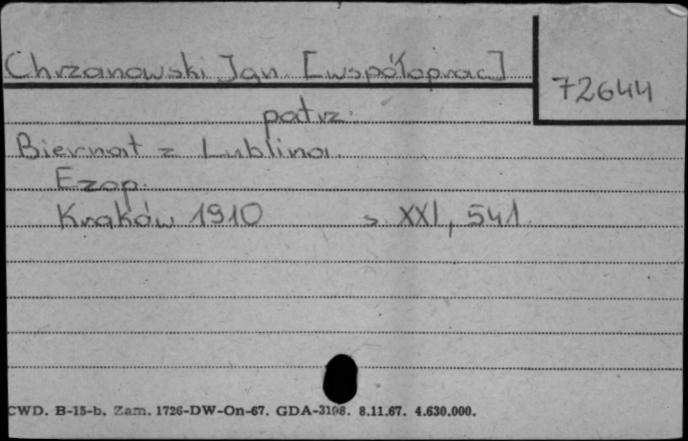 Chrzanowski Jan [współoprac]
72644
patrz:
Biernat z Lublina.
Ezop.
Kraków 1910 s. XXI, 541.
CWD. B-15-b. Zam. 1726-DW-On-67. GDA-3198. 8.11.67. 4.630.000.